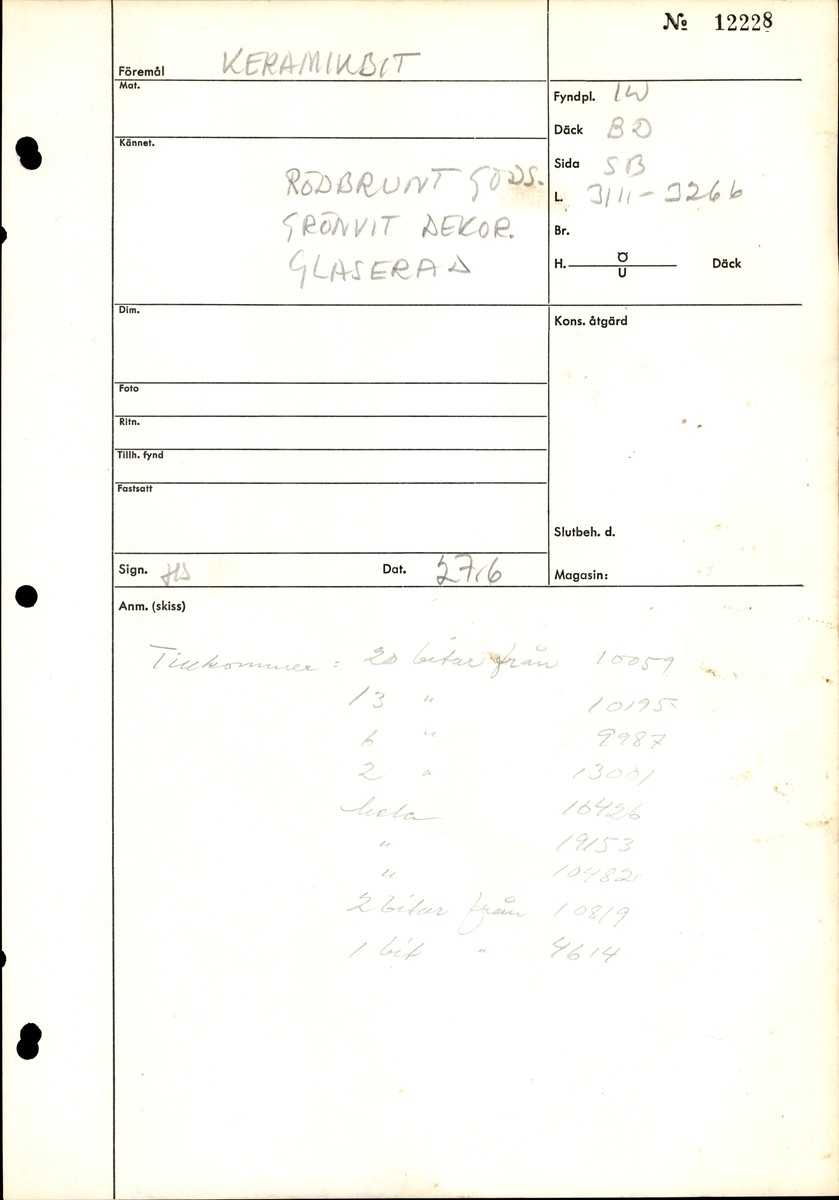 № 12228
Föremål KERAMIKBIT
Mat.
Fyndpl. IW
Däck BD
Kännet.
Sida SB
RÖDBRUNT GODS.
L. 3111-3266
GRÖNVIT DEKOR.
Br.
GLASERAD
H. Ö U Däck
Dim.
Kons. åtgärd
Foto
Ritn.
Tillh. fynd
Fastsatt
Slutbeh. d.
Sign. Dat. 27/6
Magasin:
Anm. (skiss)
Tillkommer: 20 bitar från 10059
13 " 10195
6 " 9987
2 " 13001
hela 10426
" 19153
" 10482
2 bitar från 10819
1 bit " 4614